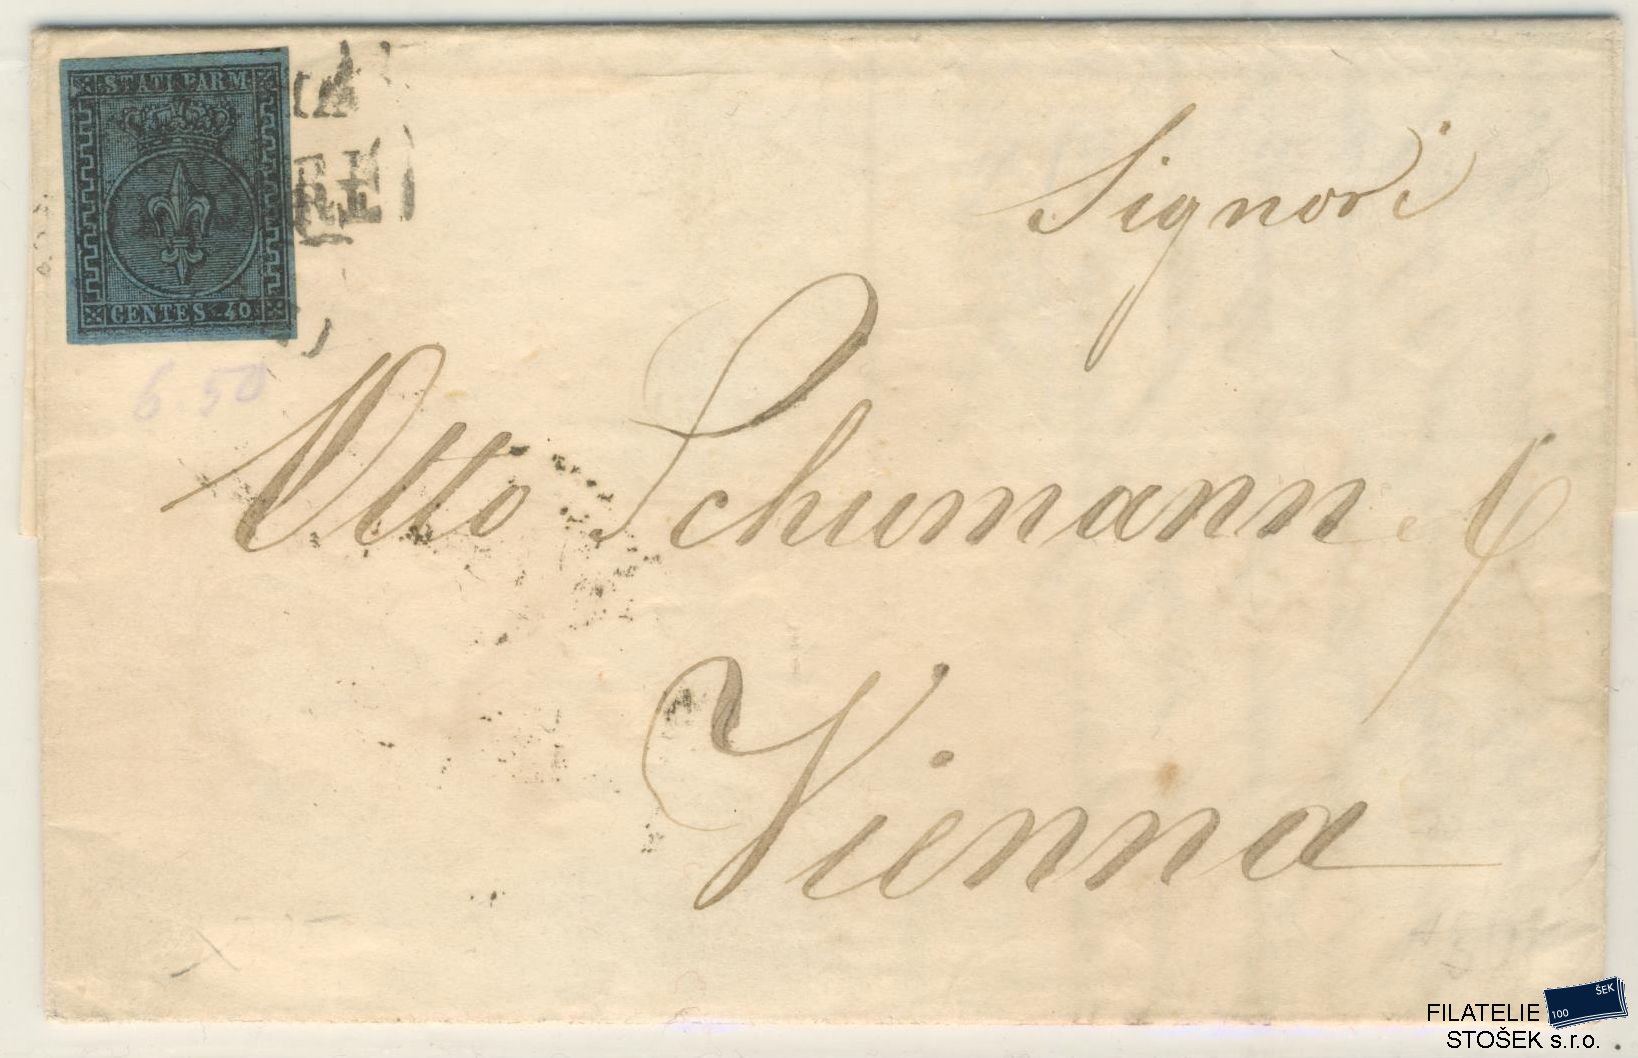 STATI PARM
CENTES. 40
6.50
Signori
Otto Schumann
Vienna
FILATELIE
STOŠEK s.r.o.
100
ŠEK